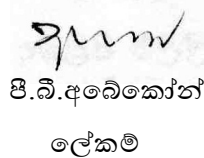 පී.බී.අබේකෝන්
ලේකම්